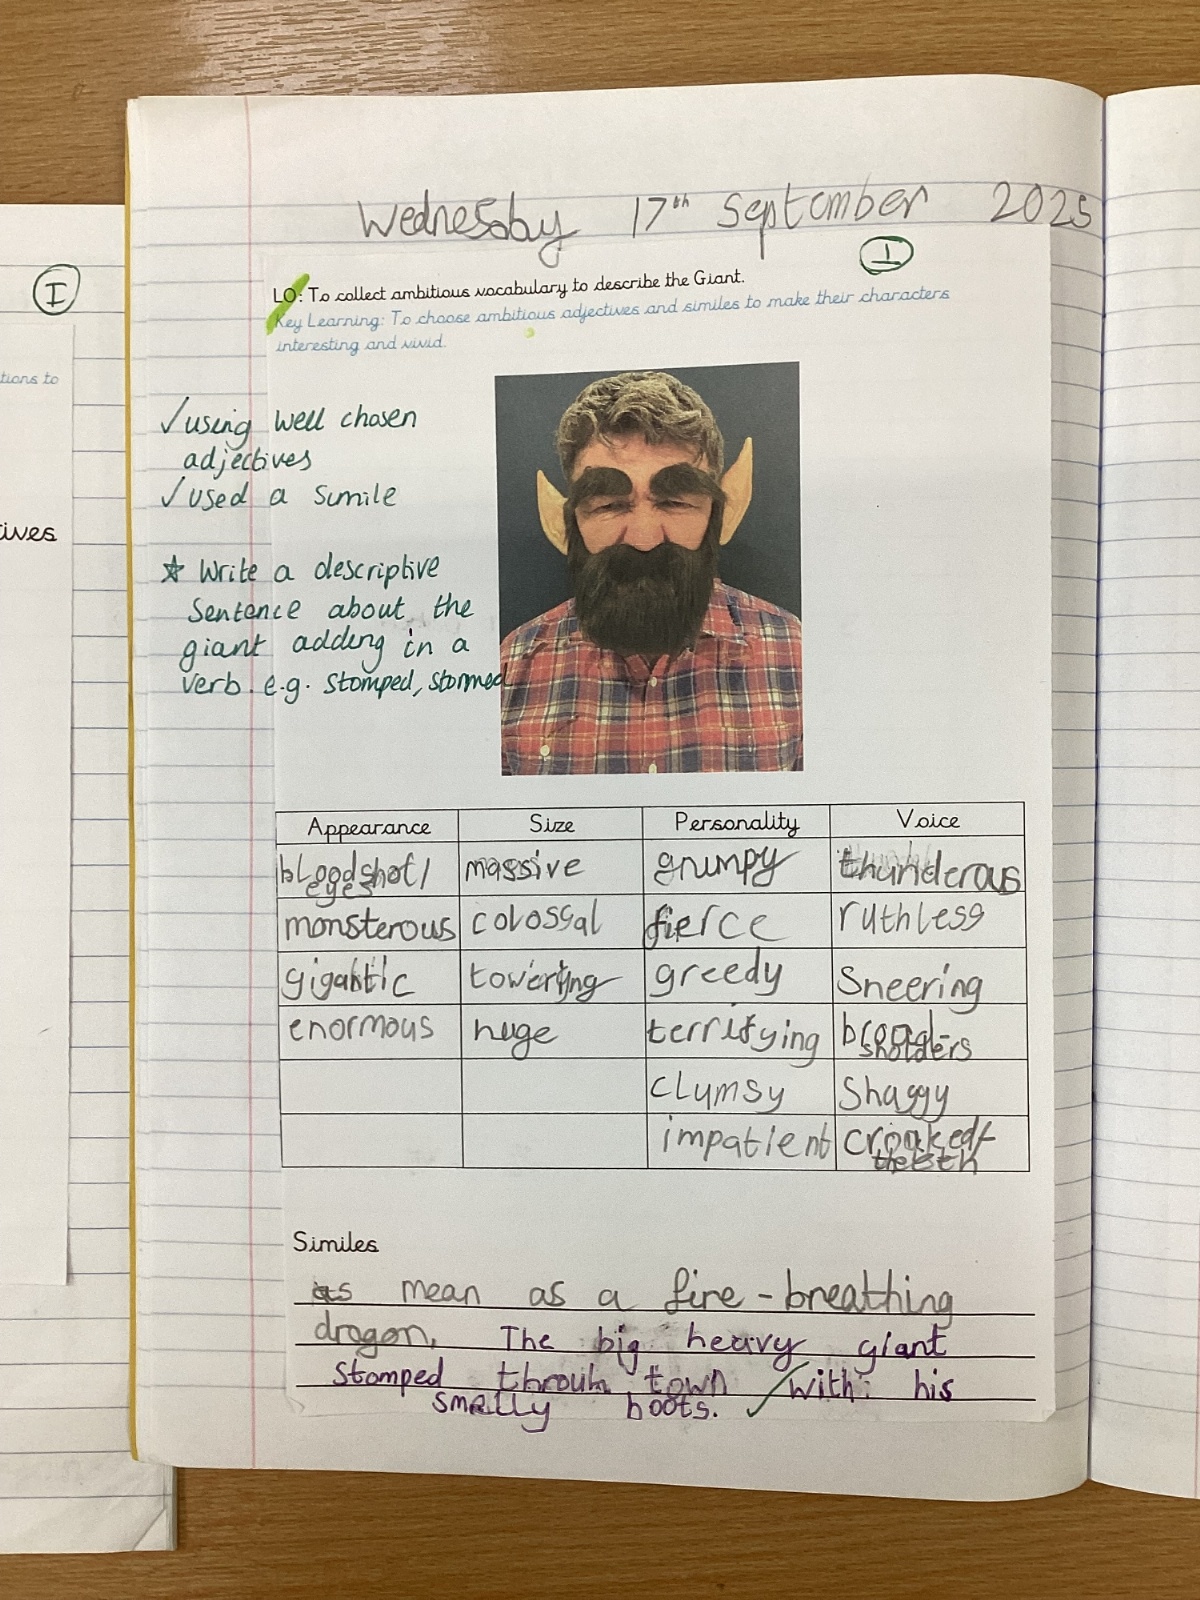 Wednesday 17th September 2025
I
I
LO: To collect ambitious vocabulary to describe the Giant.
Key Learning: To choose ambitious adjectives and similes to make their characters
interesting and vivid.
tions to
ives
✓using well chosen
adjectives
✓used a simile
☆ Write a descriptive
sentence about the
giant adding in a
verb. e.g. stomped, stormed
Appearance Size Personality Voice
bloodshot/ massive grumpy thunderous
eyes
monsterous colossal fierce ruthless
gigantic towering greedy Sneering
enormous huge terrifying broad-
sholders
clumsy Shaggy
impatient crooked/
teeth
Similes
as mean as a fire-breathing
dragon. The big heavy giant
stomped throuh town ✓ with his
smelly boots.